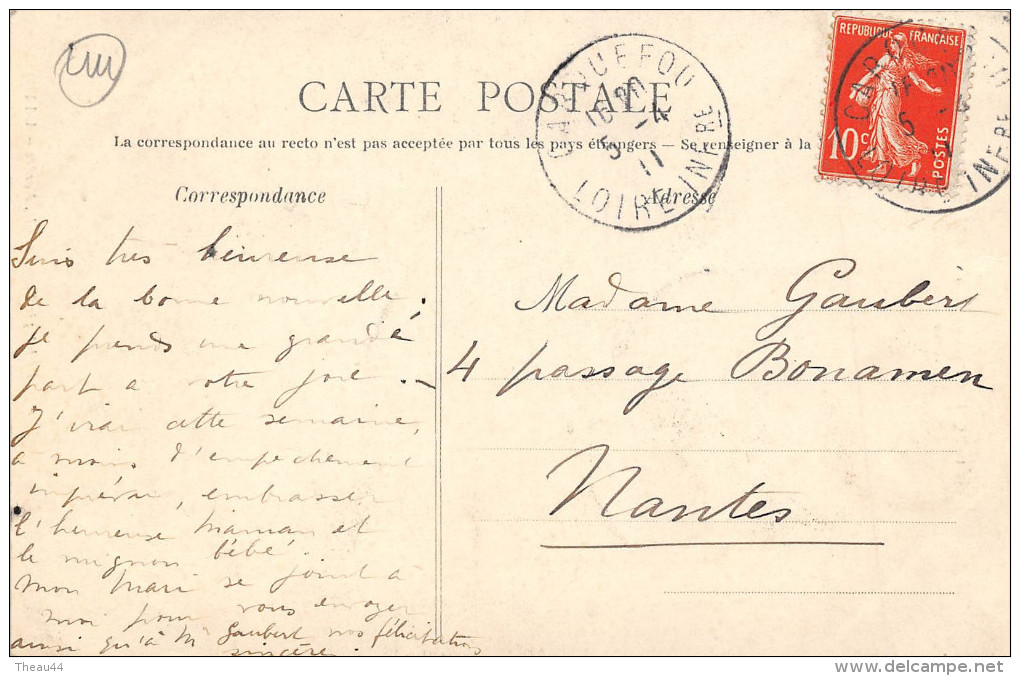 CARTE POSTALE
La correspondance au recto n'est pas acceptée par tous les pays étrangers — Se renseigner à la
Correspondance
Adresse
Suis très heureuse
de la bonne nouvelle.
je prends une grande
part à votre joie.
J'irai cette semaine,
à moins d'empechement
imprévu, embrasser
l'heureuse maman et
le mignon bébé.
mon mari se joint à
moi pour vous envoyer
ainsi qu'à Mr Gaubert nos félicitations
sincères.
Madame Gaubert
4 passage Bonamen
Nantes
CARQUEFOU
16 20
5 - 4
11
LOIRE INFRE
REPUBLIQUE FRANÇAISE
10c
POSTES
Theau44
delcampe.net